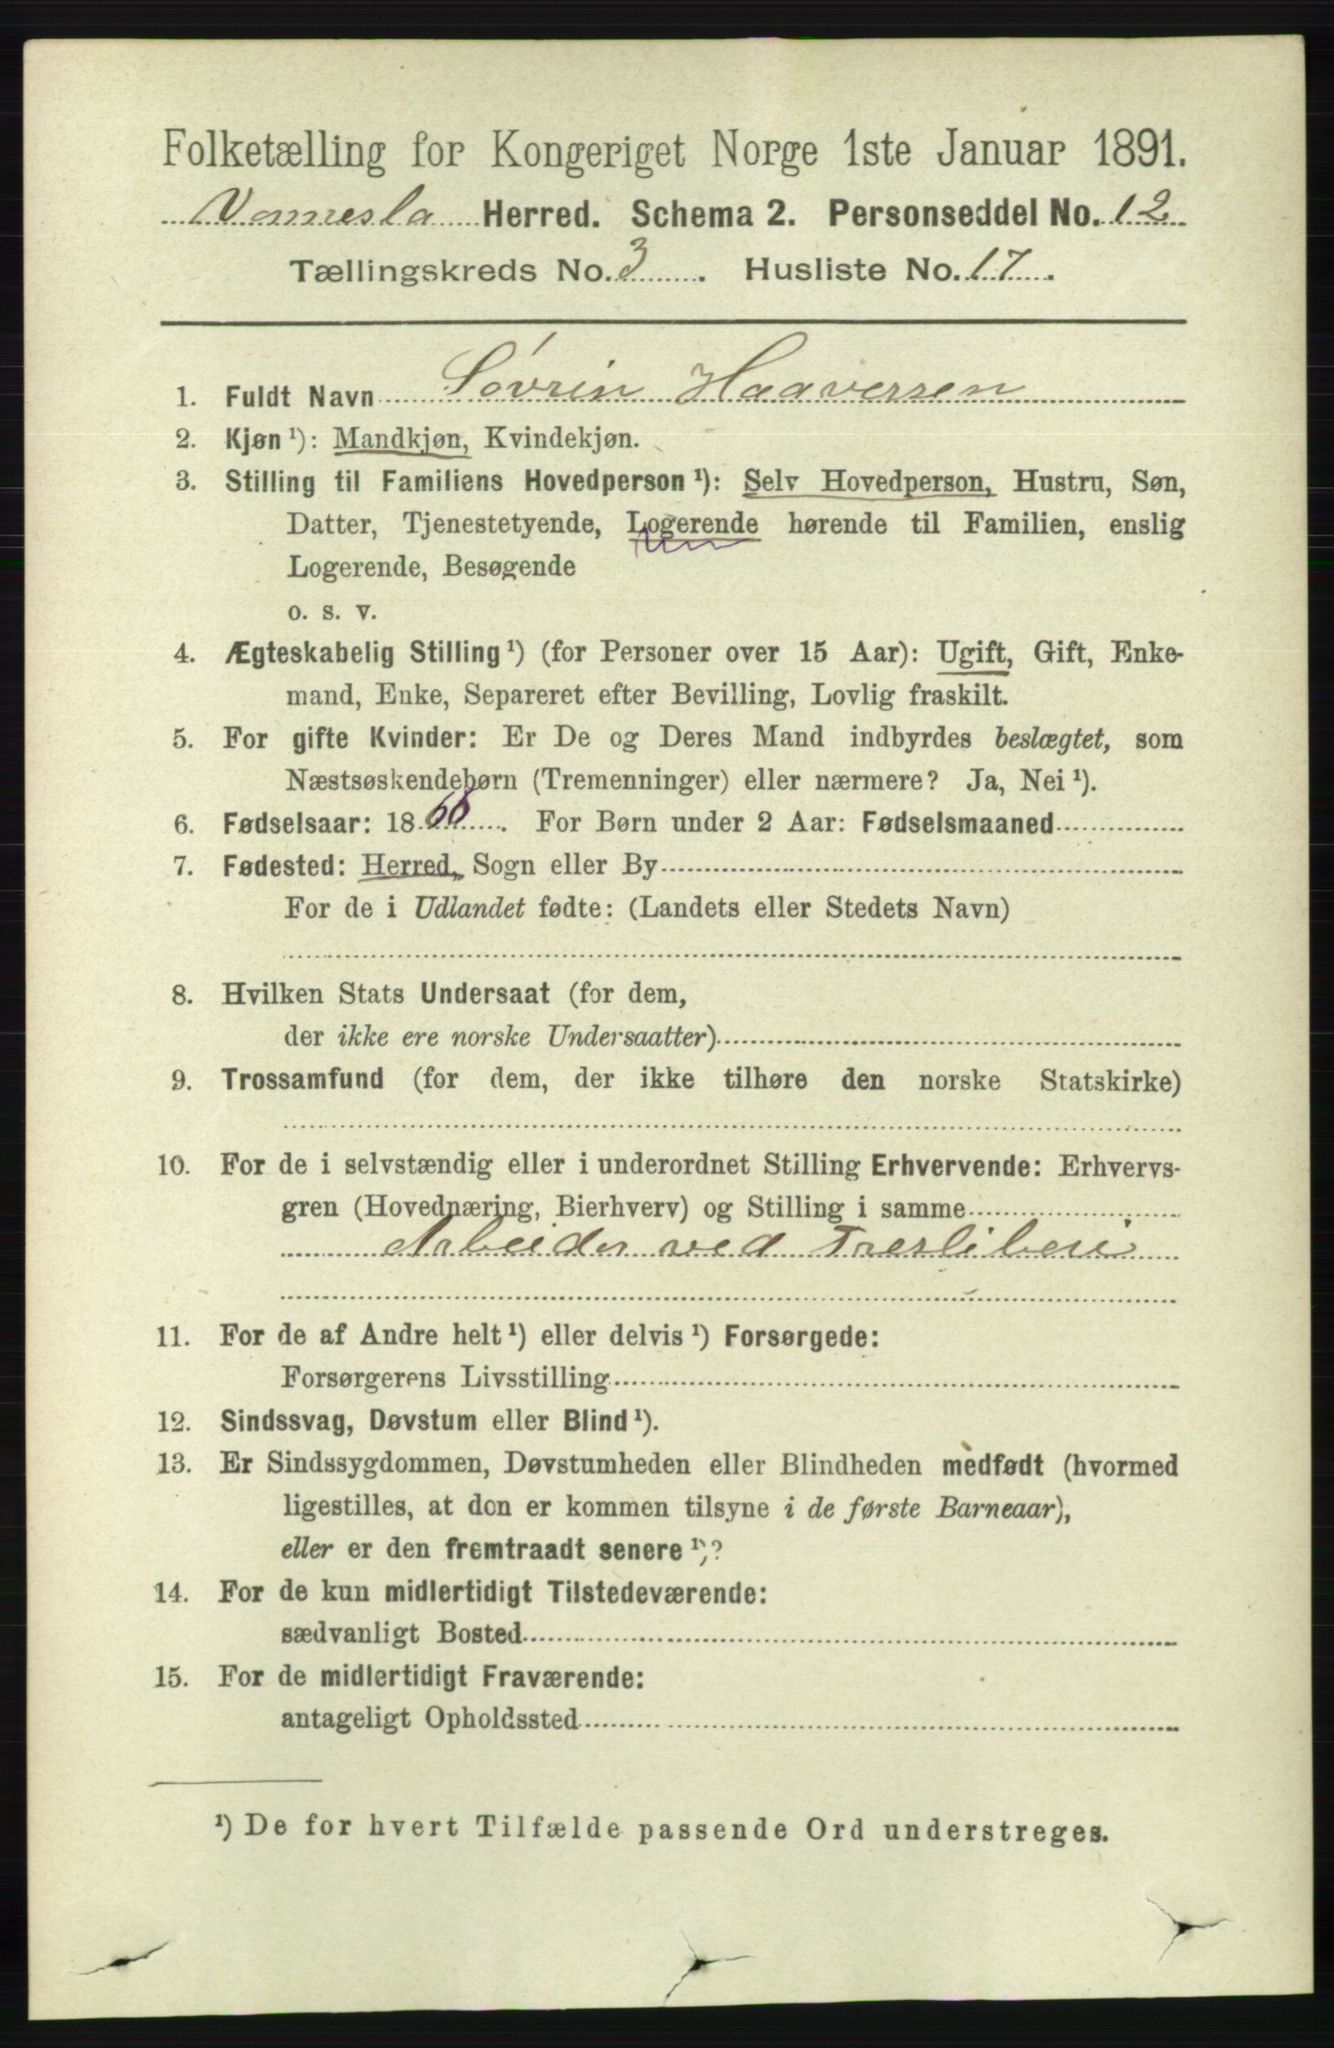 Folketælling for Kongeriget Norge 1ste Januar 1891.
Vennesla Herred. Schema 2. Personseddel No. 12
Tællingskreds No. 3. Husliste No. 17.
1. Fuldt Navn Sövrin Haaversen
2. Kjøn ¹): Mandkjøn, Kvindekjøn.
3. Stilling til Familiens Hovedperson ¹): Selv Hovedperson, Hustru, Søn,
Datter, Tjenestetyende, Logerende hørende til Familien, enslig
Logerende, Besøgende
o. s. v.
4. Ægteskabelig Stilling ¹) (for Personer over 15 Aar): Ugift, Gift, Enke-
mand, Enke, Separeret efter Bevilling, Lovlig fraskilt.
5. For gifte Kvinder: Er De og Deres Mand indbyrdes beslægtet, som
Næstsøskendebørn (Tremenninger) eller nærmere? Ja, Nei ¹).
6. Fødselsaar: 1866. For Børn under 2 Aar: Fødselsmaaned
7. Fødested: Herred, Sogn eller By
For de i Udlandet fødte: (Landets eller Stedets Navn)
8. Hvilken Stats Undersaat (for dem,
der ikke ere norske Undersaatter)
9. Trossamfund (for dem, der ikke tilhøre den norske Statskirke)
10. For de i selvstændig eller i underordnet Stilling Erhvervende: Erhvervs-
gren (Hovednæring, Bierhverv) og Stilling i samme
Arbeider ved Træsliberi
11. For de af Andre helt ¹) eller delvis ¹) Forsørgede:
Forsørgerens Livsstilling
12. Sindssvag, Døvstum eller Blind ¹).
13. Er Sindssygdommen, Døvstumheden eller Blindheden medfødt (hvormed
ligestilles, at den er kommen tilsyne i de første Barneaar),
eller er den fremtraadt senere ¹)?
14. For de kun midlertidigt Tilstedeværende:
sædvanligt Bosted
15. For de midlertidigt Fraværende:
antageligt Opholdssted
¹) De for hvert Tilfælde passende Ord understreges.